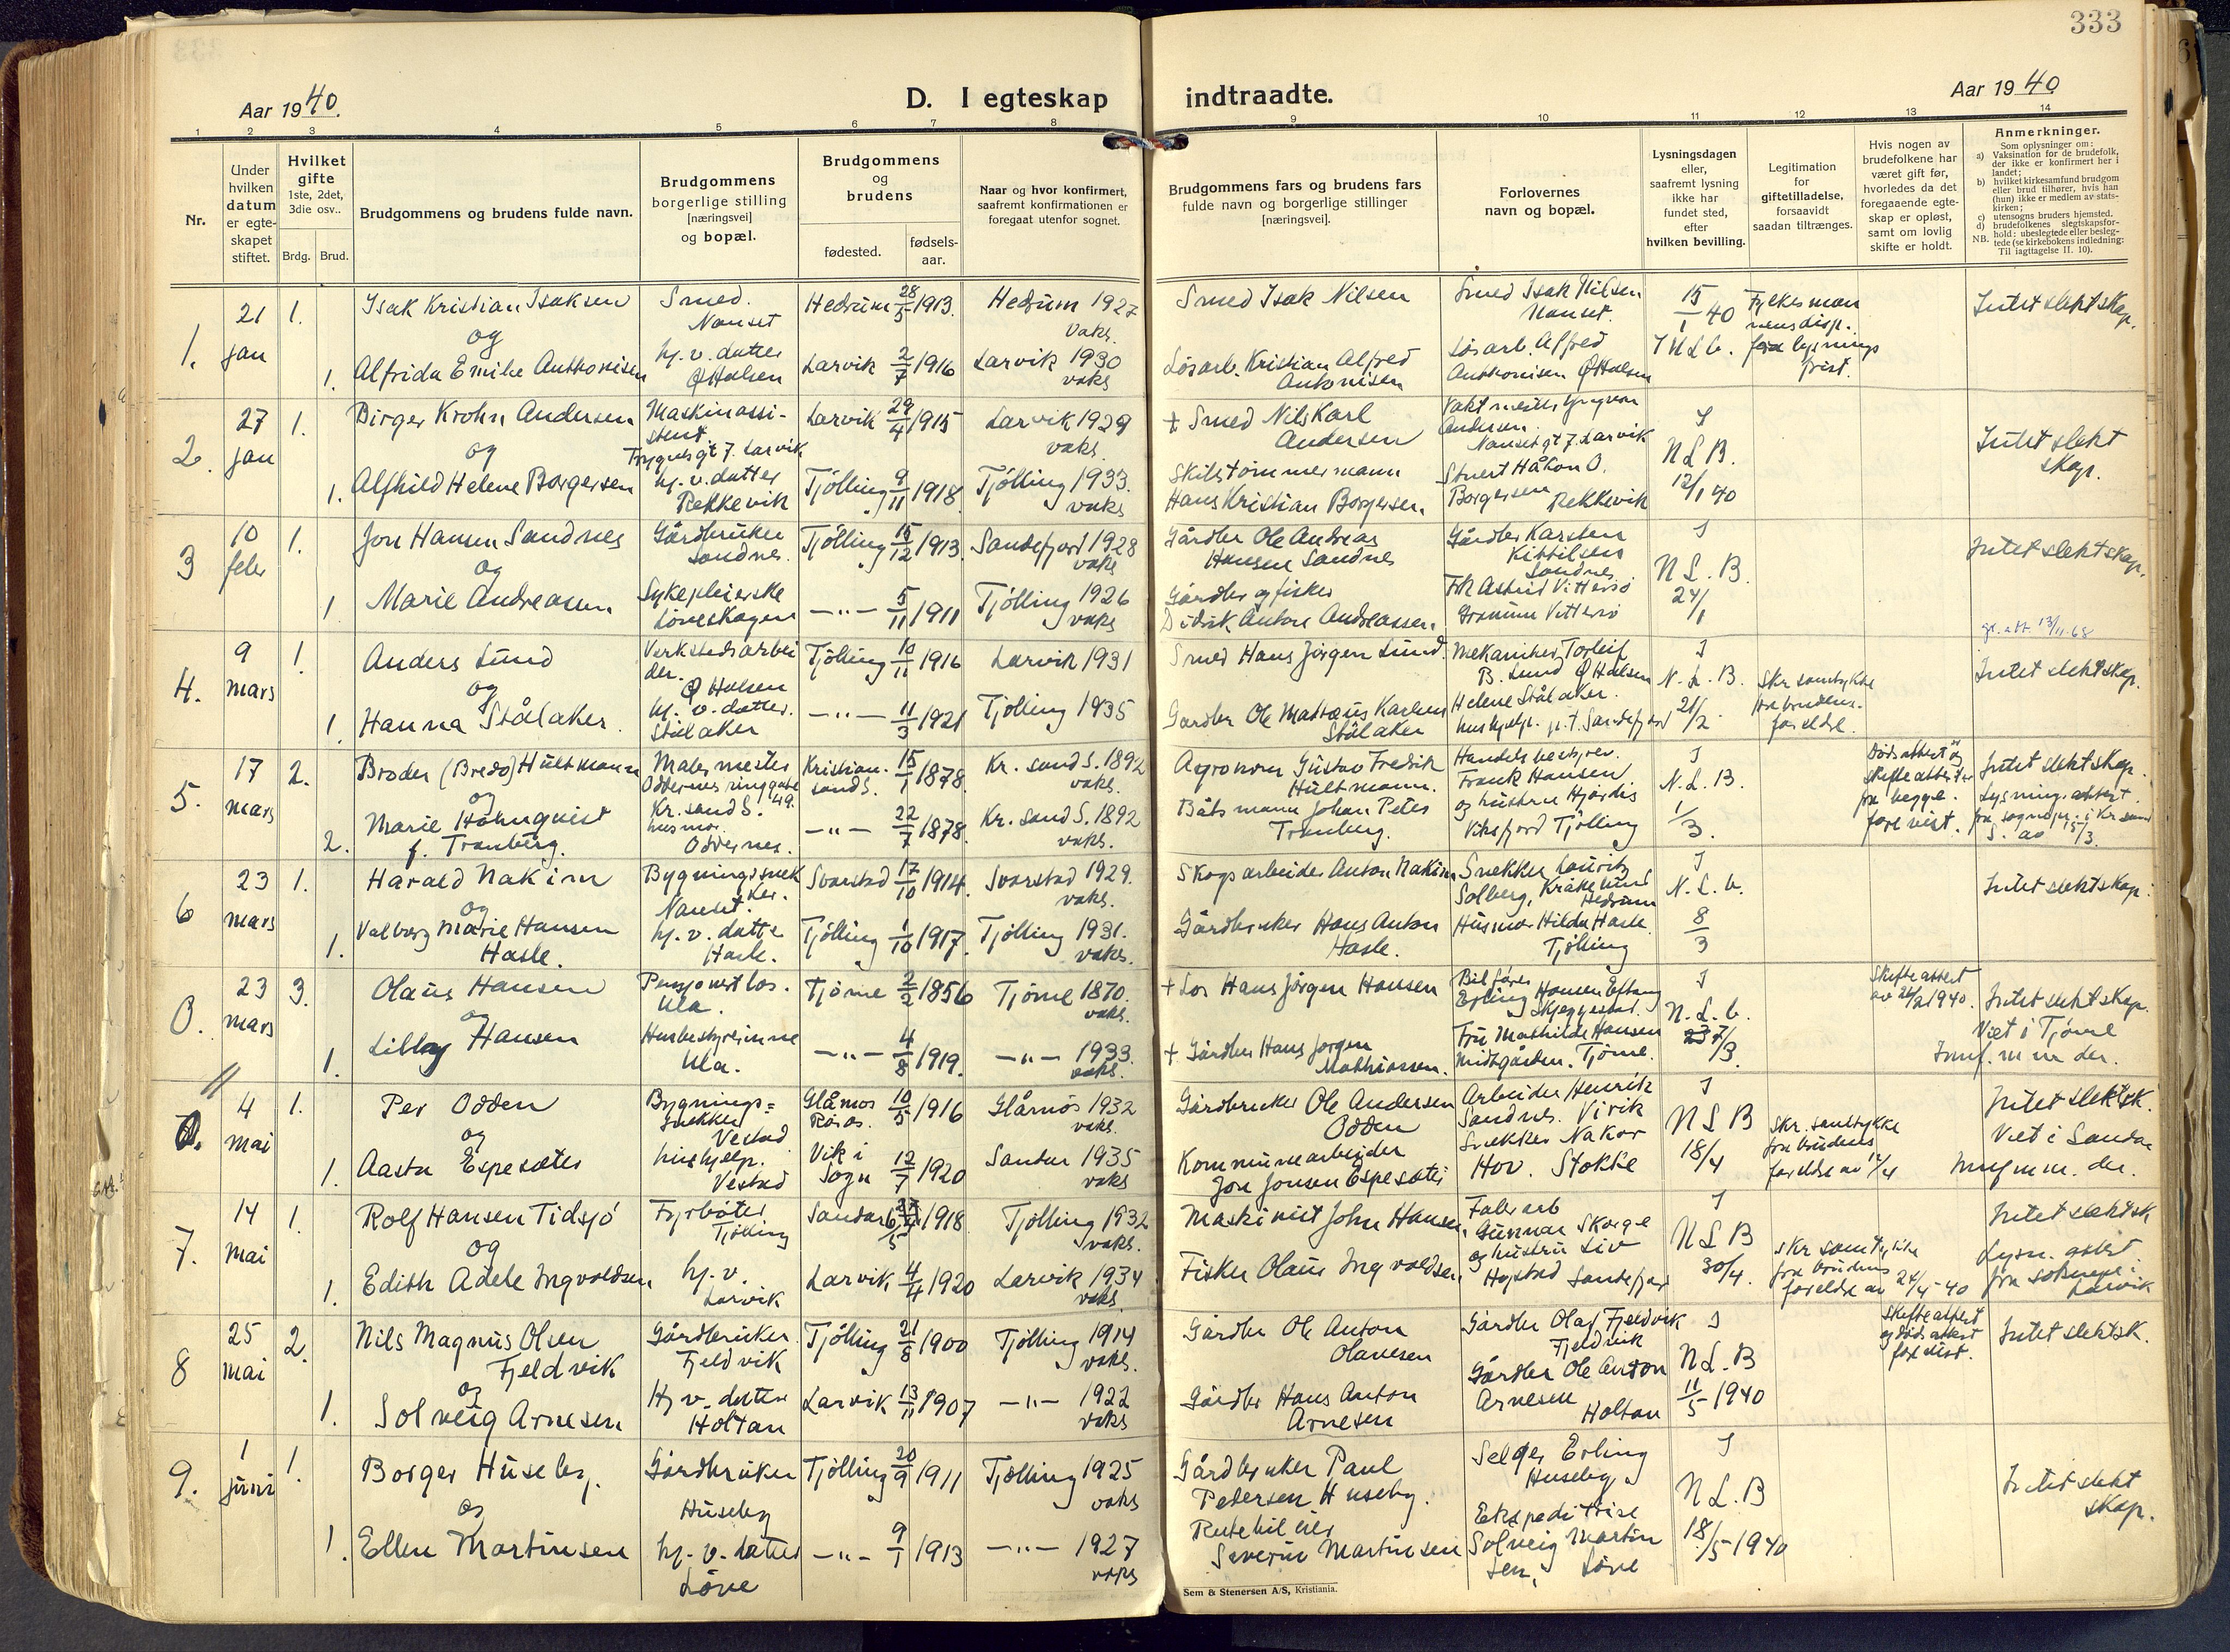 333
Aar 1940.
D. I egteskap
indtraadte.
Aar 1940
1 2 3 4 5 6 7 8 9 10 11 12 13 14
Nr.
Under
hvilken
datum
er egte-
skapet
stiftet.
Hvilket
gifte
1ste, 2det,
3die osv..
Brdg. Brud.
Brudgommens og brudens fulde navn.
Brudgommens
borgerlige stilling
[næringsvei]
og bopæl.
Brudgommens
og
brudens
fødested.
fødsels-
aar.
Naar og hvor konfirmert,
saafremt konfirmationen er
foregaat utenfor sognet.
Brudgommens fars og brudens fars
fulde navn og borgerlige stillinger
[næringsvei].
Forlovernes
navn og bopæl.
Lysningsdagen
eller,
saafremt lysning
ikke har
fundet sted,
efter
hvilken bevilling.
Legitimation
for
giftetilladelse,
forsaavidt
saadan tiltrænges.
Hvis nogen av
brudefolkene har
været gift før,
hvorledes da det
foregaaende egte-
skap er opløst,
samt om lovlig
skifte er holdt.
Anmerkninger.
Som oplysninger om:
a) Vaksination for de brudefolk,
der ikke er konfirmert her i
landet;
b) hvilket kirkesamfund brudgom
eller brud tilhører, hvis han
(hun) ikke er medlem av stats-
kirken;
c) utensogns bruders hjemsted.
d) brudefolkenes slegtskapsfor-
hold: ubeslegtede eller besleg-
tede (se kirkebokens indledning:
NB. Til iagttagelse II. 10).
1.
21 jan
1.
Isak Kristian Isaksen
og
1. Alfrida Emilie Anthonisen
Smed.
Nanset
hj. v. datter
Ø Halsen
Hedrum 28/5 1913. Hedrum 1927
vaks.
Larvik 2/7 1916 Larvik 1930
vaks
Smed Isak Nilsen
Løsarb. Kristian Alfred
Antonisen
Smed Isak Nilsen
Nanset.
Løsarb. Alfred
Anthonisen Ø Halsen
15/1 40
I N L b.
Fylkesman
nens disp.
for lysnings
frist.
Intet slektskap.
2.
27 jan
1.
Birger Krohn Andersen
og
1. Alfhild Helene Borgersen
Maskinassi-
stent
gt 7. Larvik
hj. v. datter
Rekkevik
Larvik 29/4 1915 Larvik 1929
vaks.
Tjølling 9/11 1918 Tjølling 1933.
vaks
+ Smed Nils Karl
Andersen
Skipstømmermann
Hans Kristian Borgersen.
Vaktmester Yngvar
Andersen
Nansetgt 7. Larvik
Stuert Håkon O.
Borgersen Rekkevik
I
N L B.
12/1 40
Intet slekt
skap.
3
10 febr
1.
Jon Hansen Sandnes
og
1 Marie Andreasen
Gårdbruker
Sandnes.
Sykepleierske
Løveskogen
Tjølling 15/12 1913. Sandefjord 1928
vaks
—"— 5/11 1911 Tjølling 1926
vaks
Gårdbr Ole Andreas
Hansen Sandnes
Gårdbr og fisker
Didrik Anton Andreassen.
Gårdbr Karsten
Kittilsen
Sandnes
Frk Astrid Vittersø
Vittersø
I
N L. B.
24/1
Intet slektskap.
4.
9 mars
1.
Anders Lund
og
1. Hanna Stålaker.
Verkstedsarbei
der.
Ø Halsen
hj. v. datter.
Stålaker
Tjølling 10/11 1916 Larvik 1931
—"— 11/3 1921 Tjølling 1935
Smed Hans Jørgen Lund.
Gårdbr Ole Mattæus Karlsen
Stålaker
Mekaniker Torleif
B. Lund Ø Halsen
Helene Stålaker.
hushjelp. p.t. Sandefjord
I
N. L. B.
21/2.
Skr samtykke
fra brudens.
foreldre.
13/11-68
Intet slektskap.
5.
17 mars
2.
Broder (Bredo) Hultmann
og
2. Marie Holmquist
f. Tranberg.
Malermester
Oddernes ringgate
49.
Kr. sand S.
husmor.
Oddernes.
Kristian-
sand S. 15/1 1878. Kr. sand S. 1892
vaks.
—"— 22/7 1878. Kr. sand S. 1892
vaks.
Agronom Gustav Fredrik
Hultmann.
Båtsmann Johan Peter
Tranberg.
Handelsbestyrer.
Frank Hansen
og hustru Hjørdis
Viksfjord Tjølling
I
N. L. B.
1/3.
Dødsattest og
skifteattester
fra begge.
forevist.
Intet slektskap.
Lysningsattest.
fra sognepr. i Kr sand
S. av 15/3.
6
23 mars
1.
Harald Nakim
og
1. Valborg Marie Hansen
Hasle.
Bygningssnek
ker.
Nanset.
hj. v. datter
Hasle.
Svarstad 17/10 1914. Svarstad 1929.
vaks.
Tjølling 1/10 1917. Tjølling 1931.
vaks.
Skogsarbeider Anton Nakim
Gårdbruker Hans Anton
Hasle.
Snekker Lauritz
Solberg, Kråkelund
Hedrum
Husmor Hilda Hasle
Tjølling
I
N. L. b.
8/3
Intet slektskap.
0.
23 mars
3.
Olaus Hansen
og
1. Libby Hansen
Pensjonert los.
Ula.
Husbestyrerinne
Ula.
Tjøme 2/2 1856 Tjøme 1870.
vaks.
—"— 4/8 1919. —"— 1933.
vaks.
+ Los Hans Jørgen Hansen
+ Gårdbr Hans Jørgen
Mathiassen.
Bilfører
Erling Hansen Eftang
Skjeggestad.
Fru Mathilde Hansen
Midtgården. Tjøme.
I
N. L. b.
7/3.
Skifteattest
av 24/2 1940.
Intet slektskap.
Viet i Tjøme
Innf. m nr der.
0.
4 mai
1.
Per Odden
og
1. Aasta Espeseter
Bygnings=
snekker
Vestad
hushjelp.
Vestad
Glåmos
Røros. 10/5 1916 Glåmos 1932
vaks.
Vik i
Sogn 12/7 1920 Sandar 1935
vaks
Gårdbruker Ole Andersen
Odden
Kommunearbeider
Jon Jonsen Espeseter
Arbeider Henrik
Sandnes. Virik
Snekker Nakor
Hov. Stokke
I
N L B
18/4
Skr. samtykke
fra brudens
foreldre av 12/4
Intet slektsk.
Viet i Sandar
Innf m nr. der.
7.
14 mai
1.
Rolf Hansen Tidsjø
og
1. Edith Adele Ingvoldsen
Fyrbøter
Tjølling
hj. v.
Larvik
Sandar 1918 Tjølling 1932
vaks.
Larvik 4/4 1920 Larvik 1934
vaks.
Maskinist John Hansen.
Fisker Olaus Ingvoldsen.
Fabr arb
Gunnar Skorge
og hustru Liv
Sandefjord
I
N L B
30/4.
Skr samtykke
fra brudens
foreldre av 24/4-40
Intet slektsk
Lysn. attest
fra sokneprest i
Larvik
8
25 mai
2.
Nils Magnus Olsen
Fjeldvik
og
1. Solveig Arnesen
Gårdbruker.
Fjeldvik
Hj v. datter
Holtan
Tjølling 21/8 1900 Tjølling 1914
vaks.
Larvik 13/11 1907 —"— 1922
vaks
Gårdbr Ole Anton
Olavesen
Gårdbr Hans Anton
Arnesen
Gårdbr Olaf Fjeldvik
Fjeldvik
Gårdbr Ole Anton
Arnesen
Holtan
I
N L. B
11/5 1940
Skifteattest
og dødsattest
forevist.
Intet slektsk.
9.
1 juni
1.
Borger Huseby.
og
1. Ellen Martinsen
Gårdbruker
Huseby
hj. v. datter
Løve
Tjølling 20/9 1911 Tjølling 1925
vaks
—"— 9/1 1913 —"— 1927
vaks
Gårdbruker Paul
Pedersen Huseby.
Rutebileier
Severin Martinsen
Selger Erling
Huseby,
Ekspeditrise
Solveig Martin
sen, Løve
I
N L. B
18/5-1940
Intet slekt
skap.
Sem & Stenersen A/S, Kristiania.